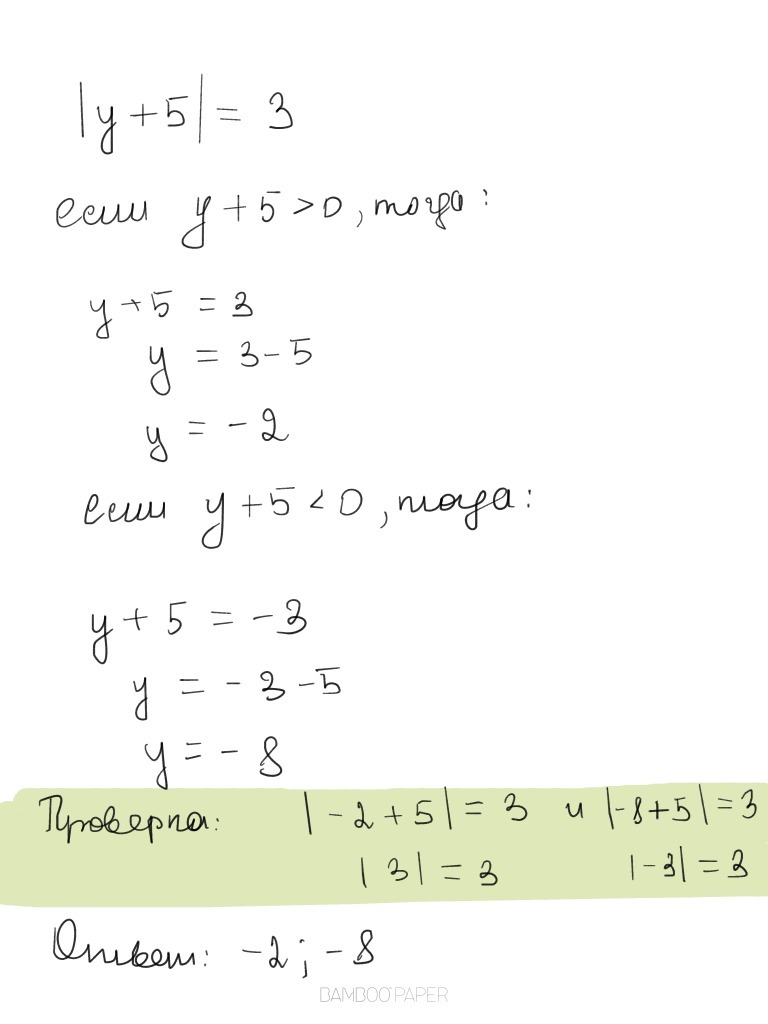 |y+5| = 3
если y + 5 > 0, тогда:
y + 5 = 3
y = 3 - 5
y = - 2
если y + 5 < 0, тогда:
y + 5 = - 3
y = - 3 - 5
y = - 8
Проверка: |- 2 + 5| = 3 и |-8+5| = 3
|3| = 3 |-3| = 3
Ответ: -2; -8
BAMBOO PAPER